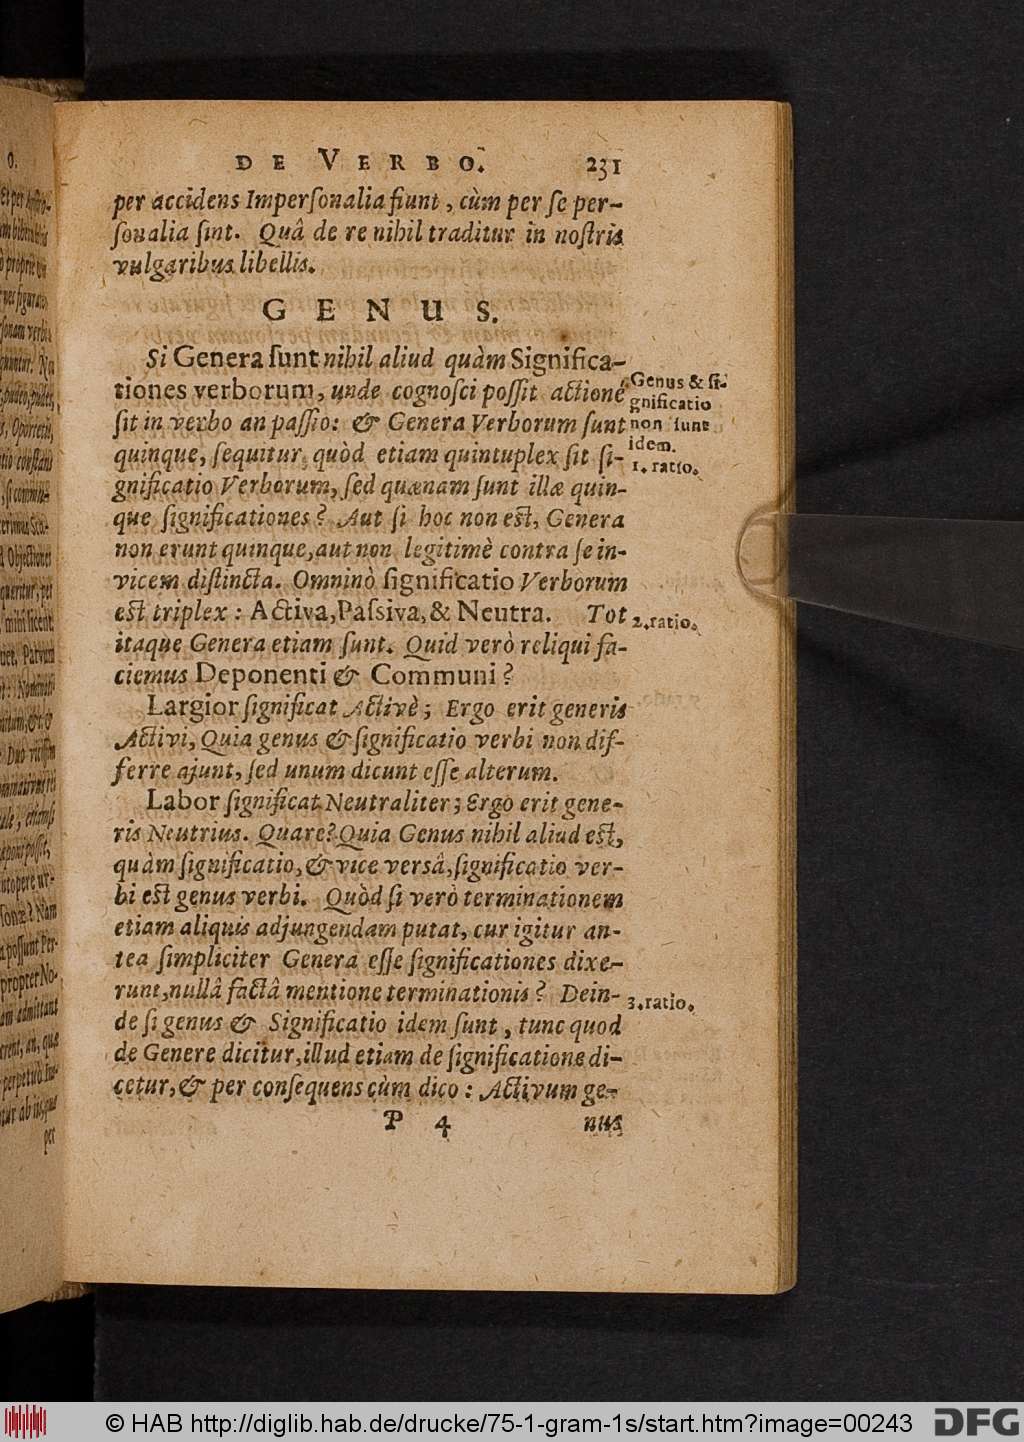 DE VERBO. 231
per accidens Imperſonalia fiunt, cùm per ſe per-
ſonalia ſint. Quâ de re nihil traditur in noſtris
vulgaribus libellis.
GENUS.
Si Genera ſunt nihil aliud quàm Significa-
tiones verborum, unde cognoſci poſſit actionẽ
ſit in verbo an paſſio: & Genera Verborum ſunt
quinque, ſequitur quòd etiam quintuplex ſit ſi-
gnificatio Verborum, ſed quænam ſunt illæ quin-
que ſignificationes? Aut ſi hoc non eſt, Genera
non erunt quinque, aut non legitimè contra ſe in-
vicem diſtincta. Omninò ſignificatio Verborum
eſt triplex: Activa, Paſsiva, & Neutra. Tot
itaque Genera etiam ſunt. Quid verò reliqui fa-
ciemus Deponenti & Communi?
Genus & ſi-
gnificatio
non ſunt
idem.
1. ratio.
2. ratio.
Largior ſignificat Activè; Ergo erit generis
Activi, Quia genus & ſignificatio verbi non dif-
ferre ajunt, ſed unum dicunt eſſe alterum.
Labor ſignificat Neutraliter; Ergo erit gene-
ris Neutrius. Quare? Quia Genus nihil aliud eſt,
quàm ſignificatio, & vice versâ, ſignificatio ver-
bi eſt genus verbi. Quòd ſi verò terminationem
etiam aliquis adjungendam putat, cur igitur an-
tea ſimpliciter Genera eſſe ſignificationes dixe-
runt, nullâ factâ mentione terminationis? Dein-
de ſi genus & Significatio idem ſunt, tunc quod
de Genere dicitur, illud etiam de ſignificatione di-
cetur, & per conſequens cùm dico: Activum ge-
3. ratio.
P 4 nus
© HAB http://diglib.hab.de/drucke/75-1-gram-1s/start.htm?image=00243
DFG